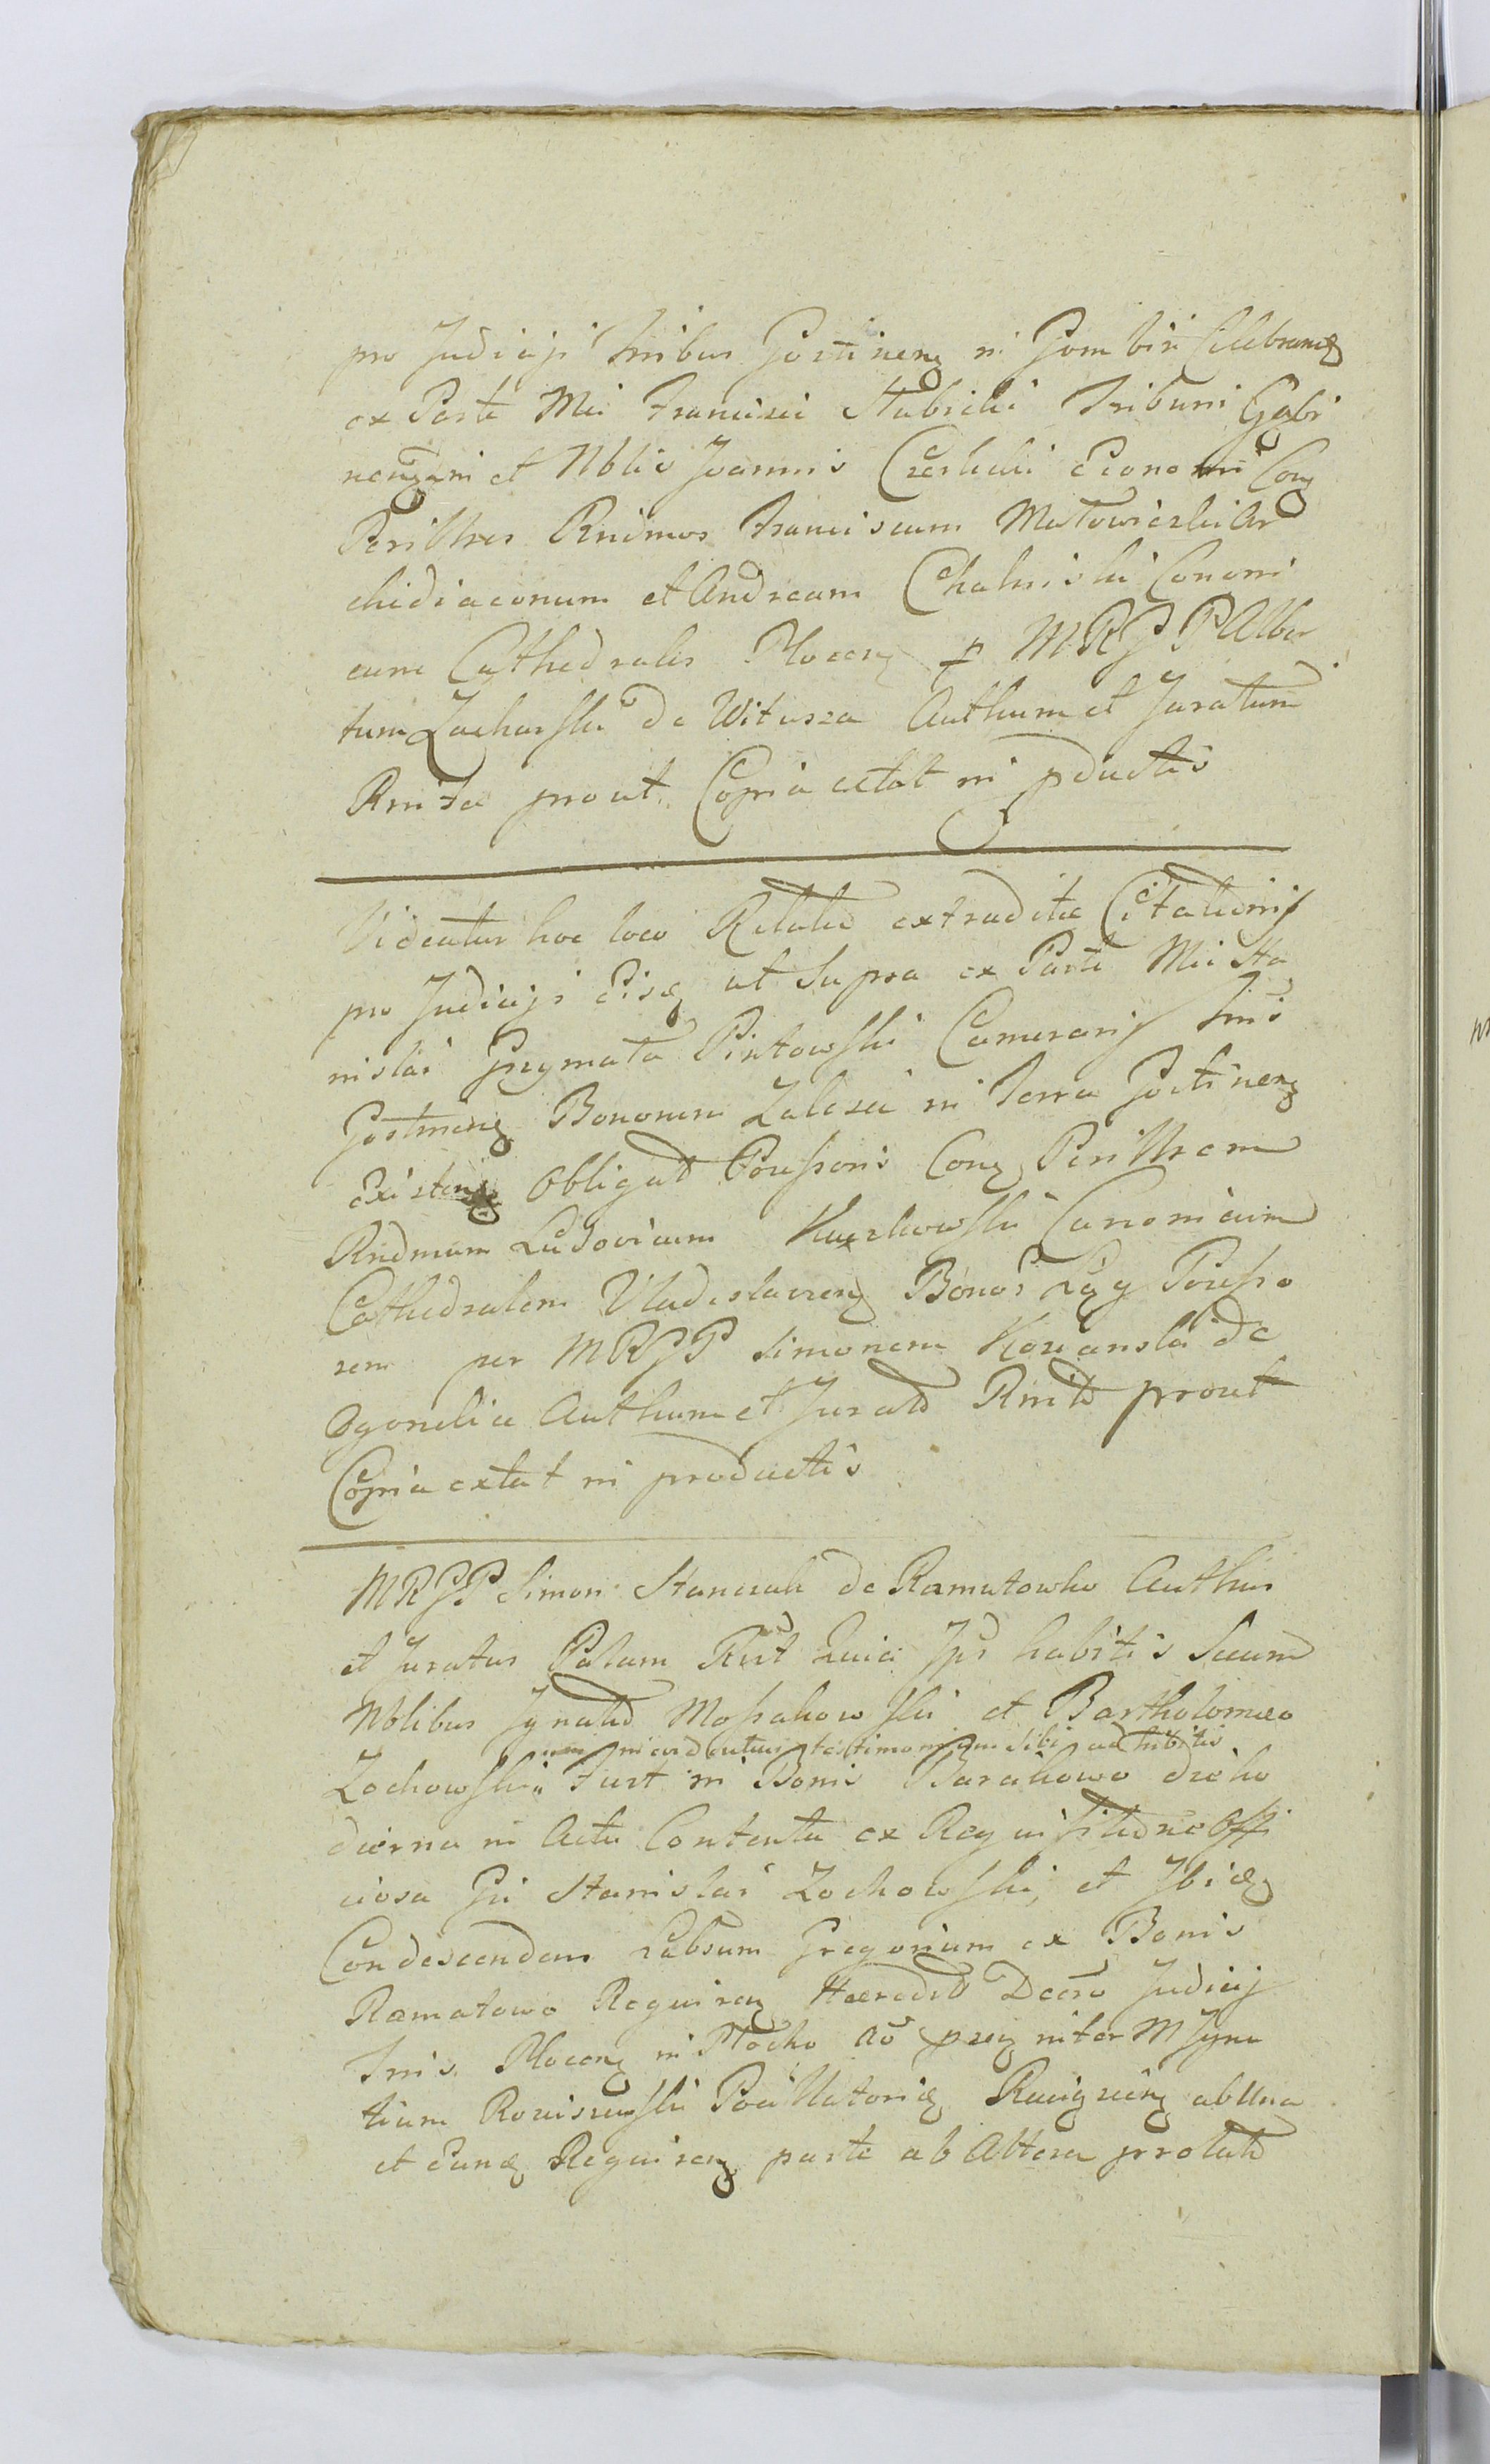 pro Judicijs Tribus Gostinen in Gombin Celebrand
ex Parte Mei Francisci Stubicki Tribuni Gąbi
nen et Nblis Joannis Czerlicki Economi Con
Perillres Rndmos Franciscum Mutowieski Ar
chidiaconum et Andream Chalmiski Canoni
cum Cathedrales Plocen p MRGP Alber
tum Zacharski de Witusza Authum et Juratum
Rnita prout Copia extat in pductis
Videatur hoc loco Relatio extraditæ Citationis
pro Judicijs Eisd ut Supra ex Parte Mei Sta
nislai Grzymała Piwtowski Camerarij Tris
Gostinen Bonorum Zalesie in Terra Gostinen
Existen Obligat Possoris Con Perillrem
Rndmum Ludovicum Kuczkowski Canonicum
Cathedralem Vladislavien Bonor Ląg Posso
rem per MRGP Simonem Kozianski de
Ogonelice Authum et Jurat Rnit prout
Copia extat in productis
MRGP Simon Stanczak de Ramutowko Authus
et Juratus Palam Rt Quia Jps habitis Secum
Nblibus Jgnatio Mossakowski et Bartholomæo
in evidentius testimonium Sibi adhibitis
Zochowski Fuit in Bonis Barakowo die ho
dierna in Actu Contenta ex Requisitione Offi
ciosa Gi Stanislai Zochowski, et Ibid
Condescendens Labsum Gregorium ex Bonis
Ramatowo Requiren Haered Decro Judicij
Tris Plocen in Płocko Ao prn inter M Jgna
tium Rosciszewski Pocillatorid Raciązien ab Una
et Eund Requiren parte ab Altera prolato